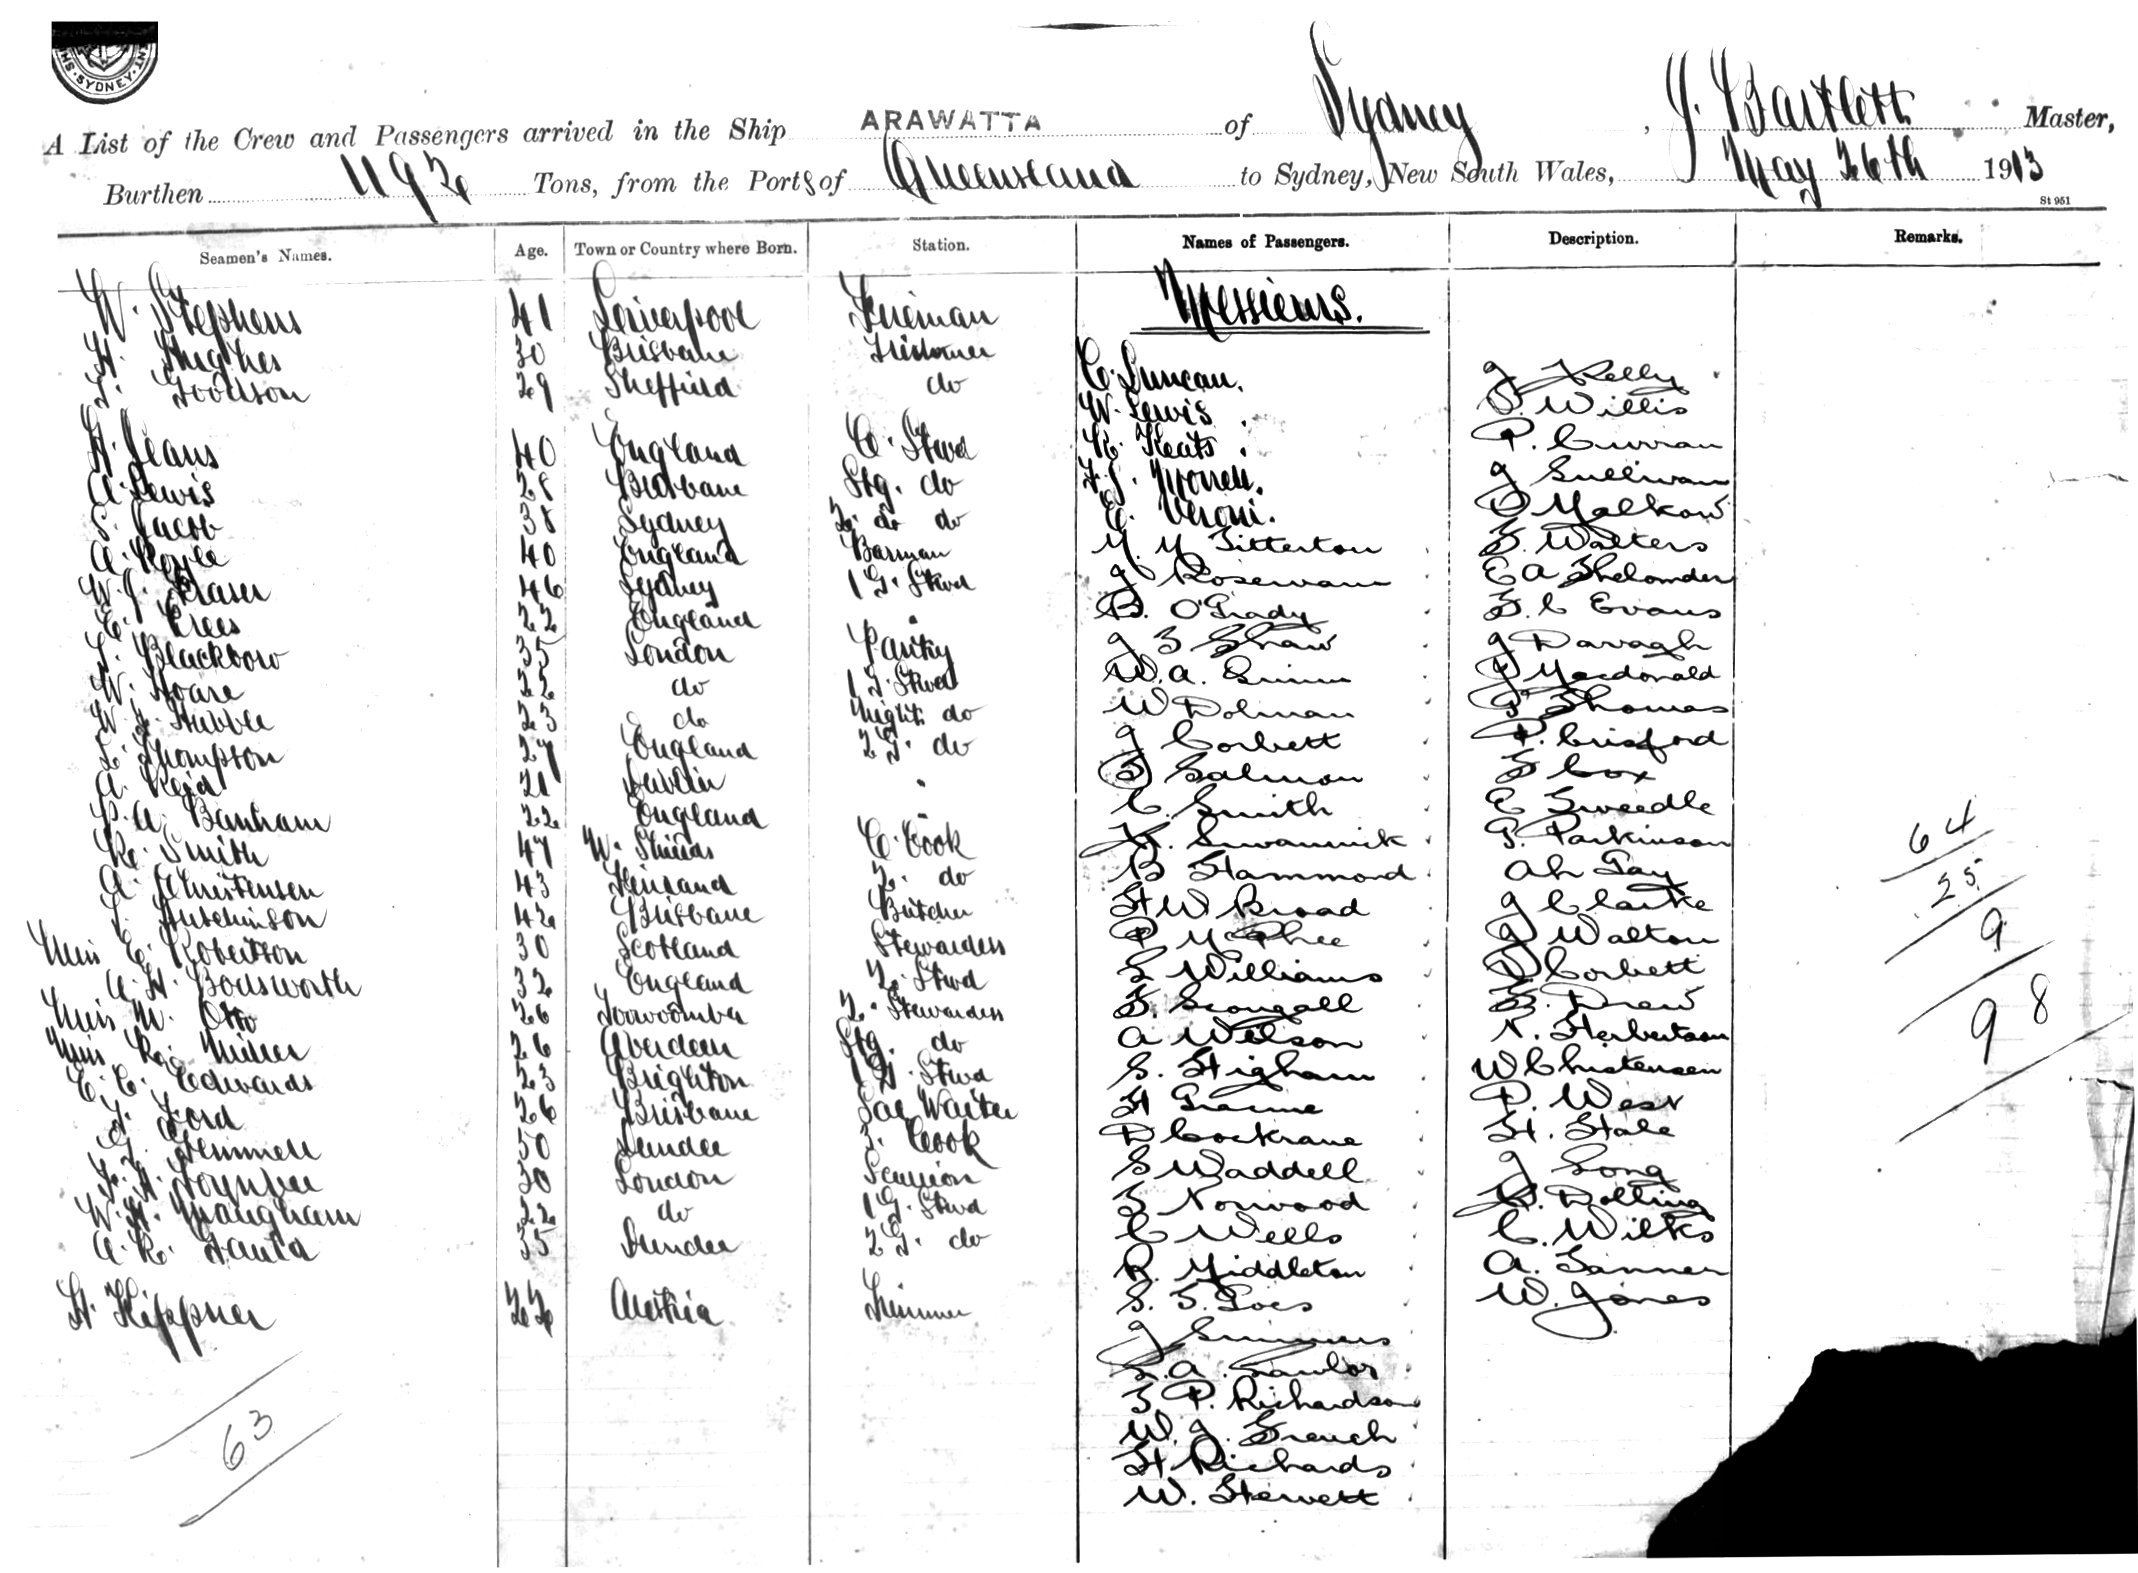 SYDNEY
A List of the Crew and Passengers arrived in the Ship ARAWATTA of Sydney, J. Bartlett Master,
Burthen 1192 Tons, from the Port s of Queensland to Sydney, New South Wales, May 26th 1913
St 951
Seamen's Names. Age. Town or Country where Born. Station. Names of Passengers. Description. Remarks.
W. Stephens 41 Liverpool Fireman Messieurs.
H. Hughes 30 Brisbane Trimmer
Goodson 29 Sheffield do C. Duncan. J Kelly
W. Lewis. Willis
H. Jeans 40 England C. Stwd R. Keats. P. Curran
A. Lewis 28 Brisbane Stg. do F. J. Morrell. J Sullivan
S. Jacob 38 Sydney 2. do do E. Veroni.
A. Royle 40 England Barman M. M. Titterton F. Walters
W. J. Fraser 46 Sydney 1 G. Stwd J E A
E. Crees 22 England " B. O'Grady F. C Evans
Blackbow 35 London Pantry J F Shaw J Darragh
W. Hoare 22 do 1 G. Stwd W. A. Quinn J Macdonald
W. J. Hubble 23 do Night do W Dolman Thomas
Thompson 27 England 2 G. do J Corbett P. Crisford
A. Reid 21 Dublin " Salmon F Cox
P. A. Banham 22 England " C. Smith E Tweedle
R. Smith 47 N. Shields C. Cook H. Swannick G. Parkinson 64
A. Christensen 43 2. do B Hammond Ah Gay 25
Hutchinson 42 Brisbane Butcher H W Broad J Clarke
Miss E. Robertson 30 Scotland Stewardess P McPhee J Walton 9
A. H. Bodsworth 32 England 2. Stwd L Williams D Corbett
Miss M. Otto 26 Toowoomba 2. Stewardess F. Scongall F. Drew 98
Miss R. Miller 26 Aberdeen Stg. do A Wilson N. Herbertson
C. C. Edwards 23 Brighton 1 G. Stwd S. Higham W Christensen
Ford 26 Brisbane Sal Waiter H Graeme P. West
G. Gemmell 50 Dundee 3. Cook D Cockrane H. Hale
Toynbee 30 London Scullion S Waddell J Long
W. H. Maugham 22 do 1 G. Stwd F Norwood H. Dolling
A. R. 35 Dundee 2 G. do C Wells C. Wilks
R. Middleton A. Tanner
H. Kippner 22 Austria Trimmer S. T. Goes W. Jones
J Summers
A.
F P. Richardson
W. J. French
63 H Richards
W. Hewett